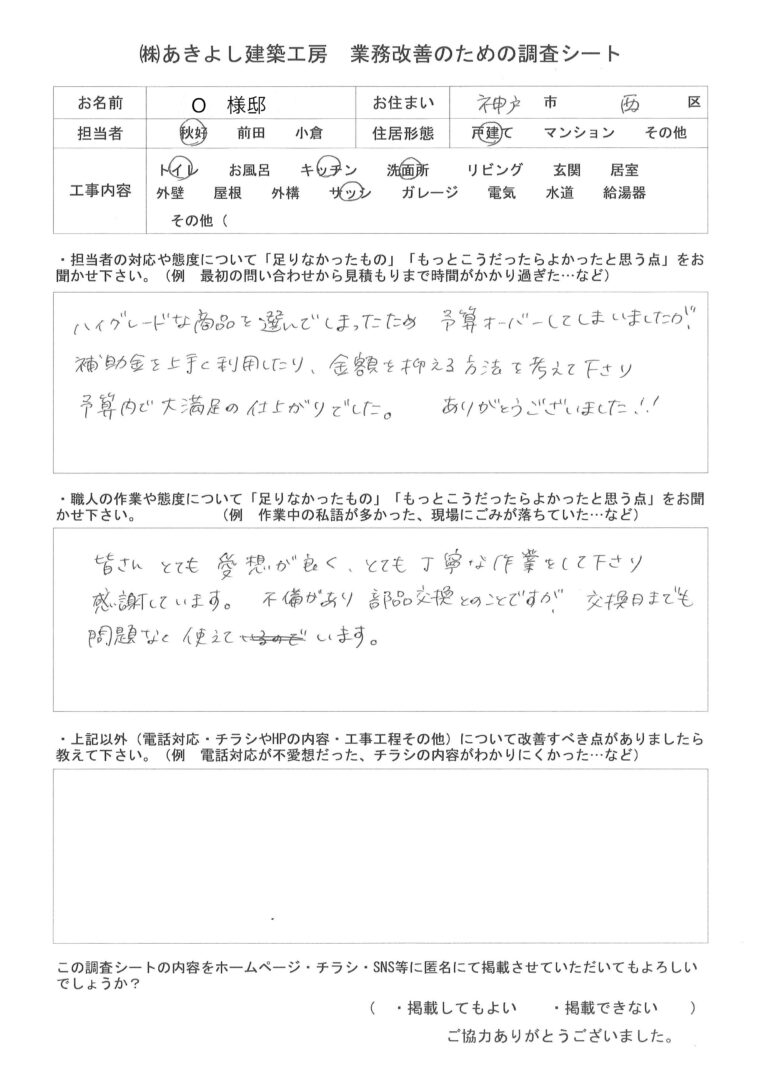 ㈱あきよし建築工房　業務改善のための調査シート
お名前　O　様邸　お住まい　神戸　市　西　区
担当者　秋好　前田　小倉　住居形態　戸建て　マンション　その他
工事内容　トイレ　お風呂　キッチン　洗面所　リビング　玄関　居室
外壁　屋根　外構　サッシ　ガレージ　電気　水道　給湯器
その他（
・担当者の対応や態度について「足りなかったもの」「もっとこうだったらよかったと思う点」をお
聞かせ下さい。（例　最初の問い合わせから見積もりまで時間がかかり過ぎた…など）
ハイグレードな商品を選んでしまったため　予算オーバーしてしまいましたが、
補助金を上手く利用したり、金額を抑える方法を考えて下さり
予算内で大満足の仕上がりでした。　ありがとうございました!!
・職人の作業や態度について「足りなかったもの」「もっとこうだったらよかったと思う点」をお聞
かせ下さい。　（例　作業中の私語が多かった、現場にごみが落ちていた…など）
皆さん　とても　愛想が良く、とても　丁寧な作業をして下さり
感謝しています。　不備があり　部品交換とのことですが、交換日までも
問題なく　使えています。
・上記以外（電話対応・チラシやHPの内容・工事工程その他）について改善すべき点がありましたら
教えて下さい。（例　電話対応が不愛想だった、チラシの内容がわかりにくかった…など）
この調査シートの内容をホームページ・チラシ・SNS等に匿名にて掲載させていただいてもよろしい
でしょうか？
（　・掲載してもよい　・掲載できない　）
ご協力ありがとうございました。